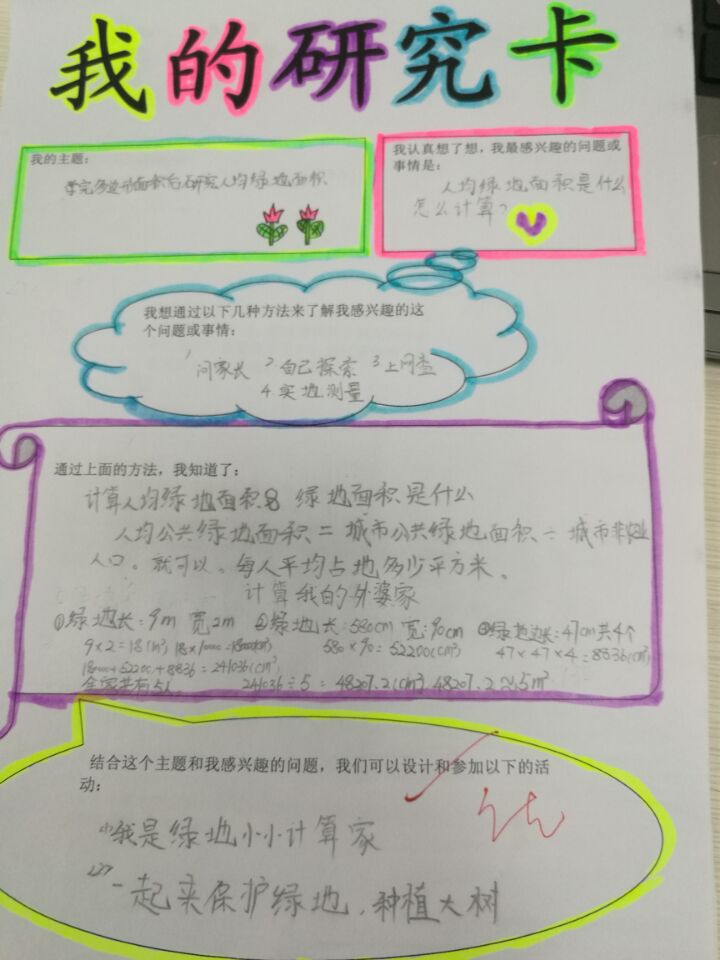 我的研究卡
我的主题：
学完多边形面积后研究人均绿地面积
我认真想了想，我最感兴趣的问题或
事情是：
人均绿地面积是什么
怎么计算？
我想通过以下几种方法来了解我感兴趣的这
个问题或事情：
1 问家长 2 自己探索 3 上网查
4 实地测量
通过上面的方法，我知道了：
计算人均绿地面积 绿地面积是什么
人均公共绿地面积=城市公共绿地面积÷城市非农业
人口。就可以。每人平均占地多少平方米。
计算我的外婆家
①绿地长：9m 宽2m ②绿地长：580cm 宽：90cm ③绿地边长：47cm共4个
9×2=18(m²) 580×90=52200(cm²) 47×47×4=8836(cm²)
+52200+8836=241036(cm²)
全家共有5人 241036÷5=48207.2(cm²) 48207.2≈5m²
结合这个主题和我感兴趣的问题，我们可以设计和参加以下的活
动：
(1)我是绿地小小计算家
(2)一起来保护绿地，种植大树
优